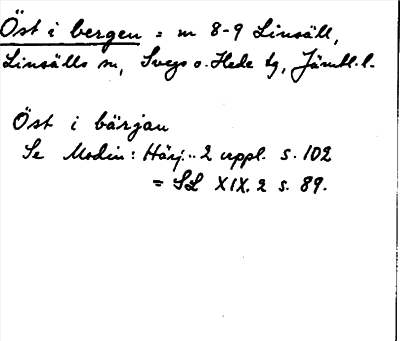 Öst i bergen = m 8-9 Linsäll,
Linsälls sn, Svegs o. Hede tg, Jämtl. l.
Öst i bärjan
Se Modin: Härj. 2 uppl. s. 102
= SL XIX. 2 s. 89.